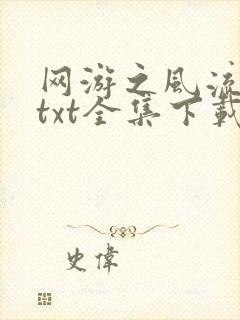 网游之风流
txt全集下載
史偉